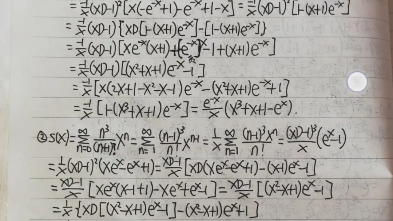 =1/x(xD-1)²[x(-e⁻ˣ+1)-e⁻ˣ+1-x]=1/x(xD-1)²[1-(x+1)e⁻ˣ]
=1/x(xD-1){xD[1-(x+1)e⁻ˣ]-[1-(x+1)e⁻ˣ]}
=1/x(xD-1)[xe⁻ˣ(x+1) e⁻ˣx-1+(x+1)e⁻ˣ]
=1/x(xD-1)[(x²+x+1)e⁻ˣ-1]
=1/x[x(2x+1-x²-x-1)e⁻ˣ-(x²+x+1)e⁻ˣ+1]
=1/x[1-(x³+x+1)e⁻ˣ]=e⁻ˣ/x(x³+x+1-eˣ).
②S(x)=∞∑n=0 n³/(n+1)! xⁿ=∞∑n=1 (n-1)³/n! xⁿ⁻¹=1/x∞∑n=1 (n-1)³/n! xⁿ=(xD-1)³/x(eˣ-1)
=1/x(xD-1)²(xeˣ-eˣ+1)=(xD-1)/x[xD(xeˣ-eˣ+1)-(x-1)eˣ-1]
=(xD-1)/x[xeˣ(x-1+1)-xeˣ+eˣ-1]=(xD-1)/x[(x²-x+1)eˣ-1]
=1/x{xD[(x²-x+1)eˣ-1]-(x²-x+1)eˣ+1}